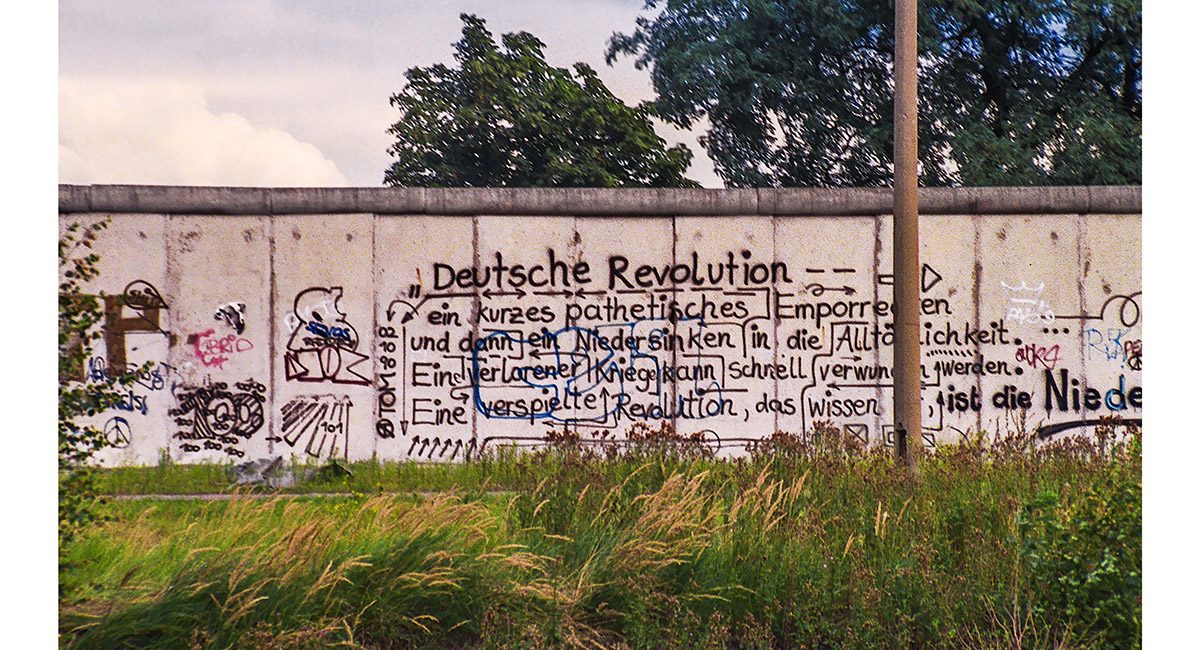 „Deutsche Revolution --
ein kurzes pathetisches Emporrecken
und dann ein Niedersinken in die Alltäglichkeit. ...
Ein verlorener Krieg kann schnell verwunden werden.
Eine verspielte Revolution, das wissen , ist die Niede
101